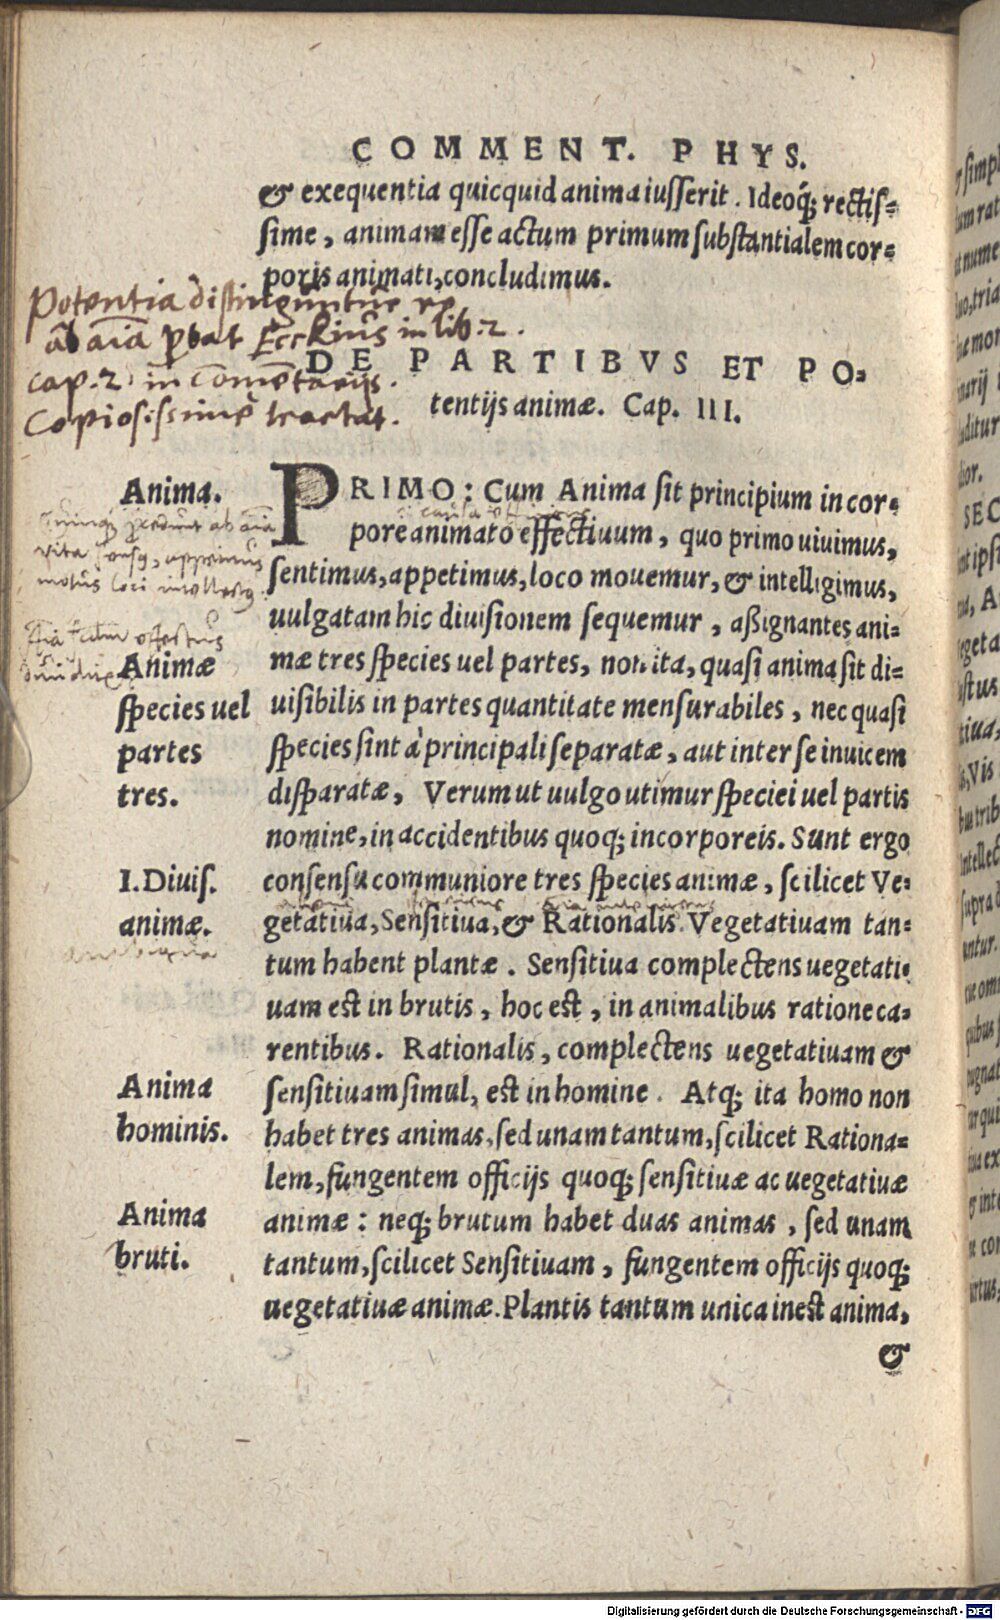 COMMENT. PHYS.
& exequentia quicquid anima iusserit. Ideoq́; rectis-
sime, animam esse actum primum substantialem cor-
poris animati, concludimus.
Potentia distinguuntur re
ab aīa ꝓbat Ecckius in lib. 2.
cap. 2. in comētarijs.
Copiosissime tractat.
DE PARTIBVS ET PO-
tentijs animæ. Cap. III.
Anima.
PRIMO: Cum Anima sit principium in cor-
pore animato effectiuum, quo primo uiuimus,
sentimus, appetimus, loco mouemur, & intelligimus,
uulgatam hic diuisionem sequemur, aßignantes ani-
mæ tres species uel partes, non ita, quasi anima sit di-
uisibilis in partes quantitate mensurabiles, nec quasi
species sint à principali separatæ, aut inter se inuicem
disparatæ, Verum ut uulgo utimur speciei uel partis
nomine, in accidentibus quoq; incorporeis. Sunt ergo
consensu communiore tres species animæ, scilicet Ve-
getatiua, Sensitiua, & Rationalis. Vegetatiuam tan-
tum habent plantæ. Sensitiua complectens uegetati-
uam est in brutis, hoc est, in animalibus ratione ca-
rentibus. Rationalis, complectens uegetatiuam &
sensitiuam simul, est in homine. Atq; ita homo non
habet tres animas, sed unam tantum, scilicet Rationa-
lem, fungentem officijs quoq; sensitiuæ ac uegetatiuæ
animæ: neq; brutum habet duas animas, sed unam
tantum, scilicet Sensitiuam, fungentem officijs quoq;
uegetatiuæ animæ. Plantis tantum unica inest anima,
&
Animæ
species uel
partes
tres.
I. Diuis.
animæ.
Anima
hominis.
Anima
bruti.
Digitalisierung gefördert durch die Deutsche Forschungsgemeinschaft - DFG